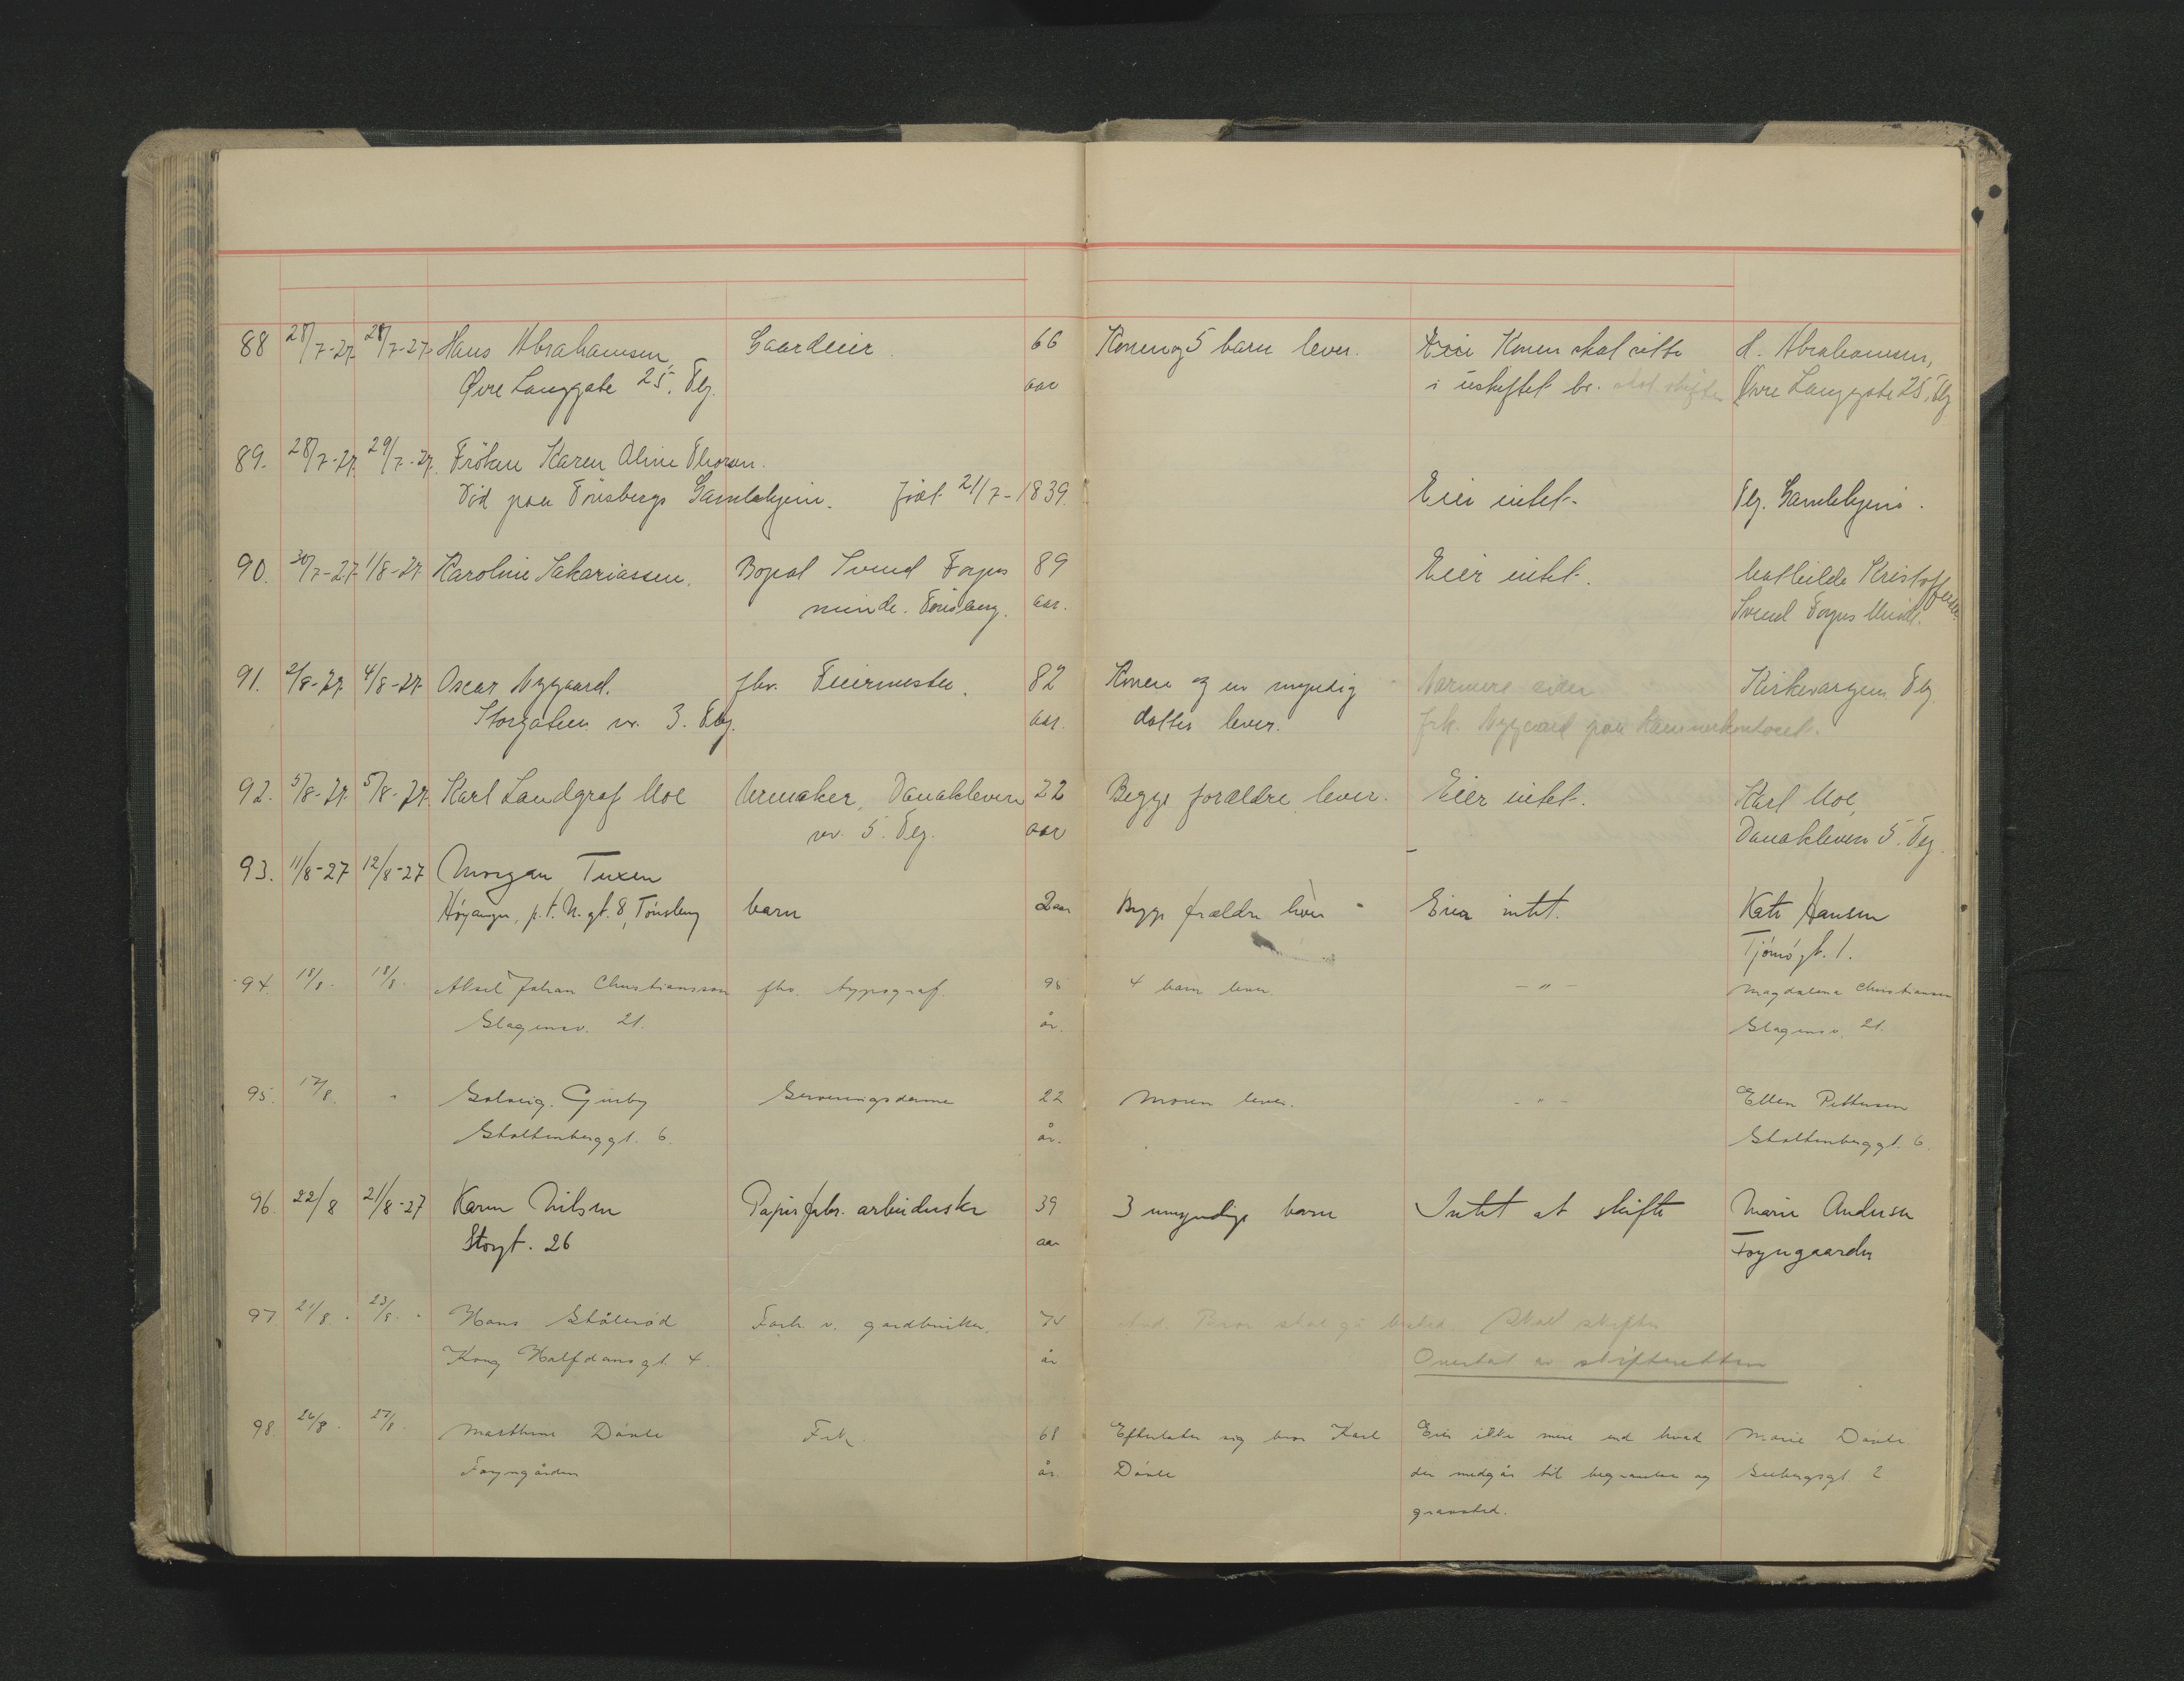 88 28/7-27. 28/7-27. Hans Abrahamsen, Gaardeier. 66 Konen og 5 barn lever. Konen skal sitte H. Abrahamsen,
Øvre Langgate 25. Tbg. aar i uskiftet bo. skal skiftes Øvre Langgate 25, Tbg
89. 28/7-27. 29/7-27. Fröken Karen Oline Thorsen.
Död paa Tönsbergs Gamlehjem. født 21/7-1839. Eier intet. Tbg. Gamlehjem.
90. 30/7-27 1/8-27 Karoline Sakariassen. Bopæl Svend Foyns 89 Eier intet. Mathilde Kristoffersen
minde. Tönsberg. aar. Svend Foyns Minde.
91. 2/8-27. 4/8-27 Oscar Nygaard. fhv. Feiermester. 82 Konen og en myndig Nærmere siden Kirkevargen Tbg.
Storgaten nr. 3. Tbg. aar. datter lever. frk. Nygaard paa Kæmnerkontoret.
92. 5/8-27. 5/8-27. Karl Landgraf Moe Urmaker, Danakleven 22 Begge forældre lever. Eier intet. Karl Moe,
nr. 5. Tbg. aar Danakleven 5. Tbg.
93. 11/8-27 12/8-27 Morgan Tuxen
Höyanger, p.t. N. gt. 8, Tönsberg barn 2 aar Begge forældre lever Eier intet. Kate Hansen
Tjömögt. 1.
94. 18/8. 18/8. Aksel Johan Christiansson fhv. typograf. 95 4 barn lever. - " - Magdalena Christiansen
Slagensv. 21. år. Slagensv. 21.
95. 17/8. " Solveig Gurby Serveringsdame 22 Moren lever. - " - Ellen Pettersen
Stoltenberggt. 6. år. Stoltenberggt. 6.
96. 22/8 21/8-27 Karen Nilsen Papirfabr. arbeiderske 39 3 umyndige barn Intet at skifte Marie Andersen
Storgt. 26 aar Foyngaarden
97 21/8. 23/8. Hans Stålerød Forh. v. gardbruker. 74 Bror skal gi besked. Skal skiftes
Kong Halfdansgt. 4. år Overtat av skifteretten
98. 26/8. 27/8. Marthine Dávle Frk. 68 Efterlater sig bror Karl Eier ikke mere end hvad Marie Dávle
Foyngården år. Dávle der medgår til begravelse og Seebergsgt 2
gravsted.